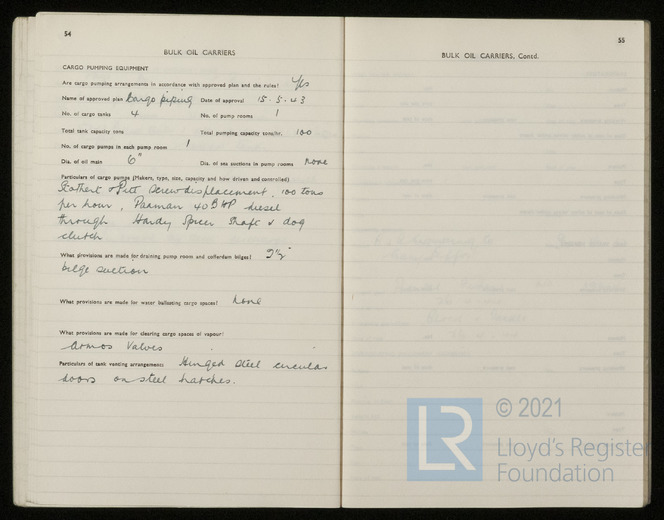 54
BULK OIL CARRIERS
CARGO PUMPING EQUIPMENT
Are cargo pumping arrangements in accordance with approved plan and the rules? Yes
Name of approved plan Cargo piping Date of approval 15.5.63
No. of cargo tanks 4 No. of pump rooms 1
Total tank capacity tons Total pumping capacity tons/hr. 100
No. of cargo pumps in each pump room 1
Dia. of oil main 6" Dia. of sea suctions in pump rooms None
Particulars of cargo pumps (Makers, type, size, capacity and how driven and controlled)
Stothert & Pitt Screw displacement, 100 tons
per hour, Paxman 40 BHP diesel
through Hardy Spicer shaft & dog
clutch
What provisions are made for draining pump room and cofferdam bilges? 2½"
bilge suction
What provisions are made for water ballasting cargo spaces? None
What provisions are made for clearing cargo spaces of vapour?
Armos Valves
Particulars of tank venting arrangements Hinged steel circular
doors on steel hatches.
55
BULK OIL CARRIERS, Contd.
LR
© 2021
Lloyd's Register
Foundation